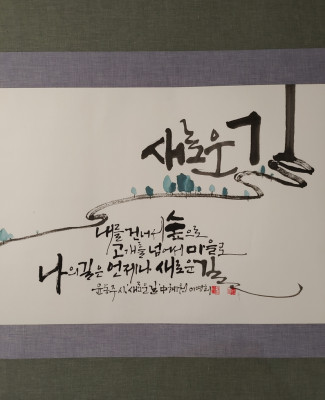 새로운 길
내를 건너서 숲으로
고개를 넘어서 마을로
나의 길은 언제나 새로운 길
윤동주 시 '새로운 길' 中